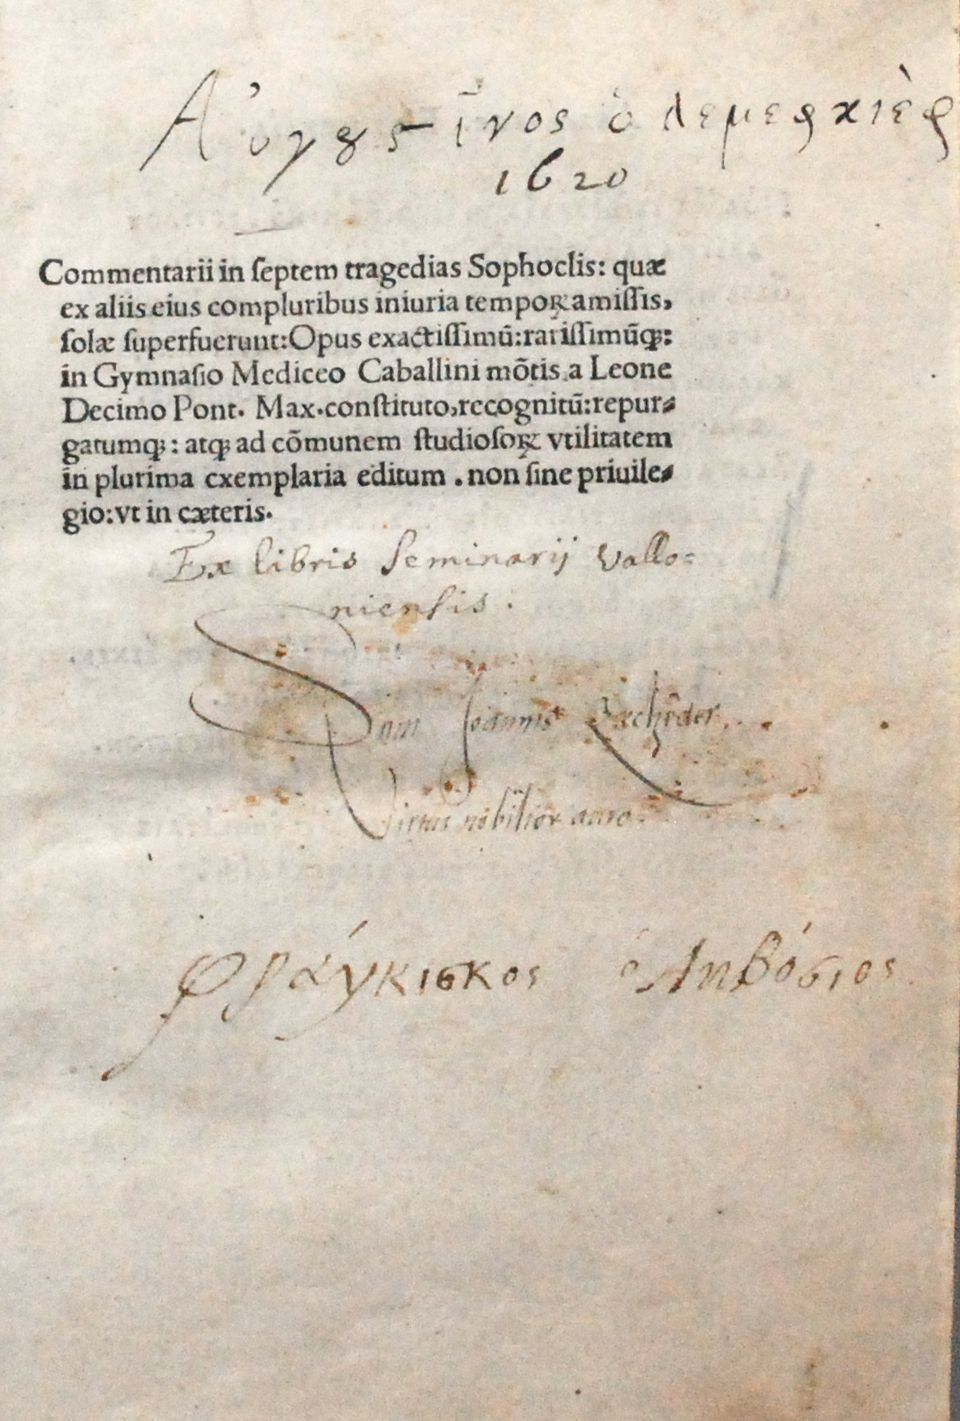 Αὐγȣϛῖνος ὁ λεμερχιὲρ
1620
Commentarii in ſeptem tragedias Sophoclis: quæ
ex aliis eius compluribus iniuria temporꝝ amiſſis,
ſolæ ſuperfuerunt: Opus exactiſſimū: rariſſimūꝗ:
in Gymnaſio Mediceo Caballini mōtis a Leone
Decimo Pont. Max. conſtituto, recognitū: repur⸗
gatumꝗ: atꝗ ad cōmunem ſtudioſoꝝ vtilitatem
in plurima exemplaria editum. non ſine priuile⸗
gio: vt in cæteris.
Ex libris Seminarij Vallo=
nienſis.
Sum Joannis
Virtus nobilior auro
Φράγκισκος ὁ Ἀμβόσιος